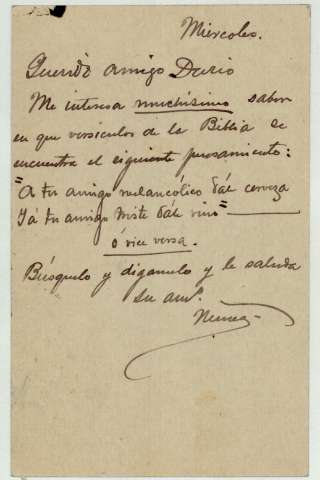 Miércoles.
Querido amigo Dario
Me interesa muchísimo saber
en que versiculos de la Biblia se
encuentra el siguiente pensamiento:
"A tu amigo melancólico dále cerveza
Y á tu amigo triste dále vino"
ó vice versa.
Búsquelo y digamelo y le saluda
su am°.